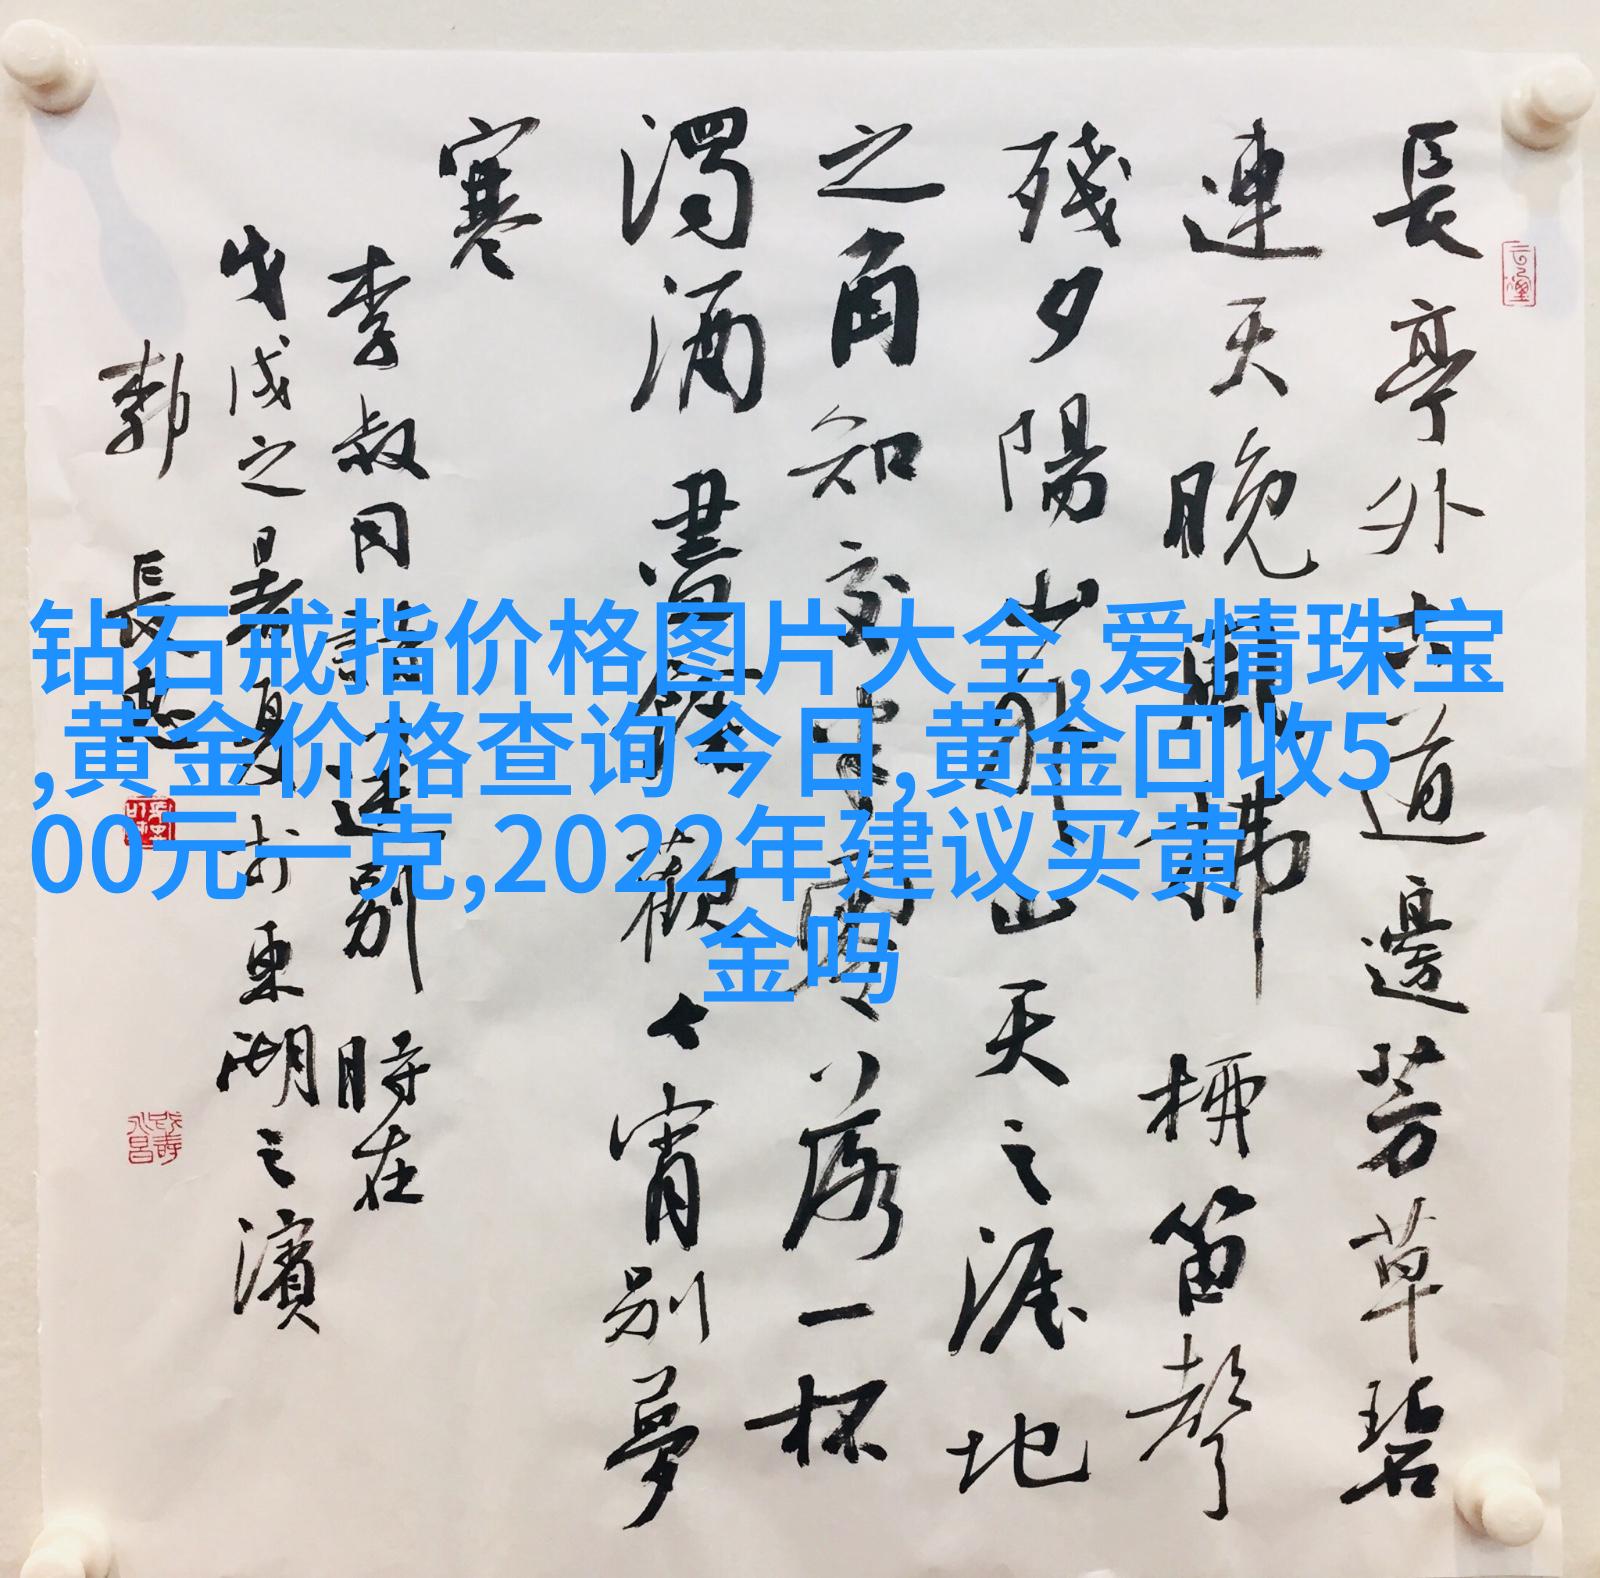 長亭外古道邊芳草碧
連天晚風拂柳笛聲
殘夕陽山外山天之涯地
之角知交半零落一杯
濁酒盡餘歡今宵別夢
寒
李叔同詩送別 時在
戊戌之暑夏於東湖之濱
郭長
钻石戒指价格图片大全,爱情珠宝
,黄金价格查询今日,黄金回收5
00元一克,2022年建议买黄
金吗